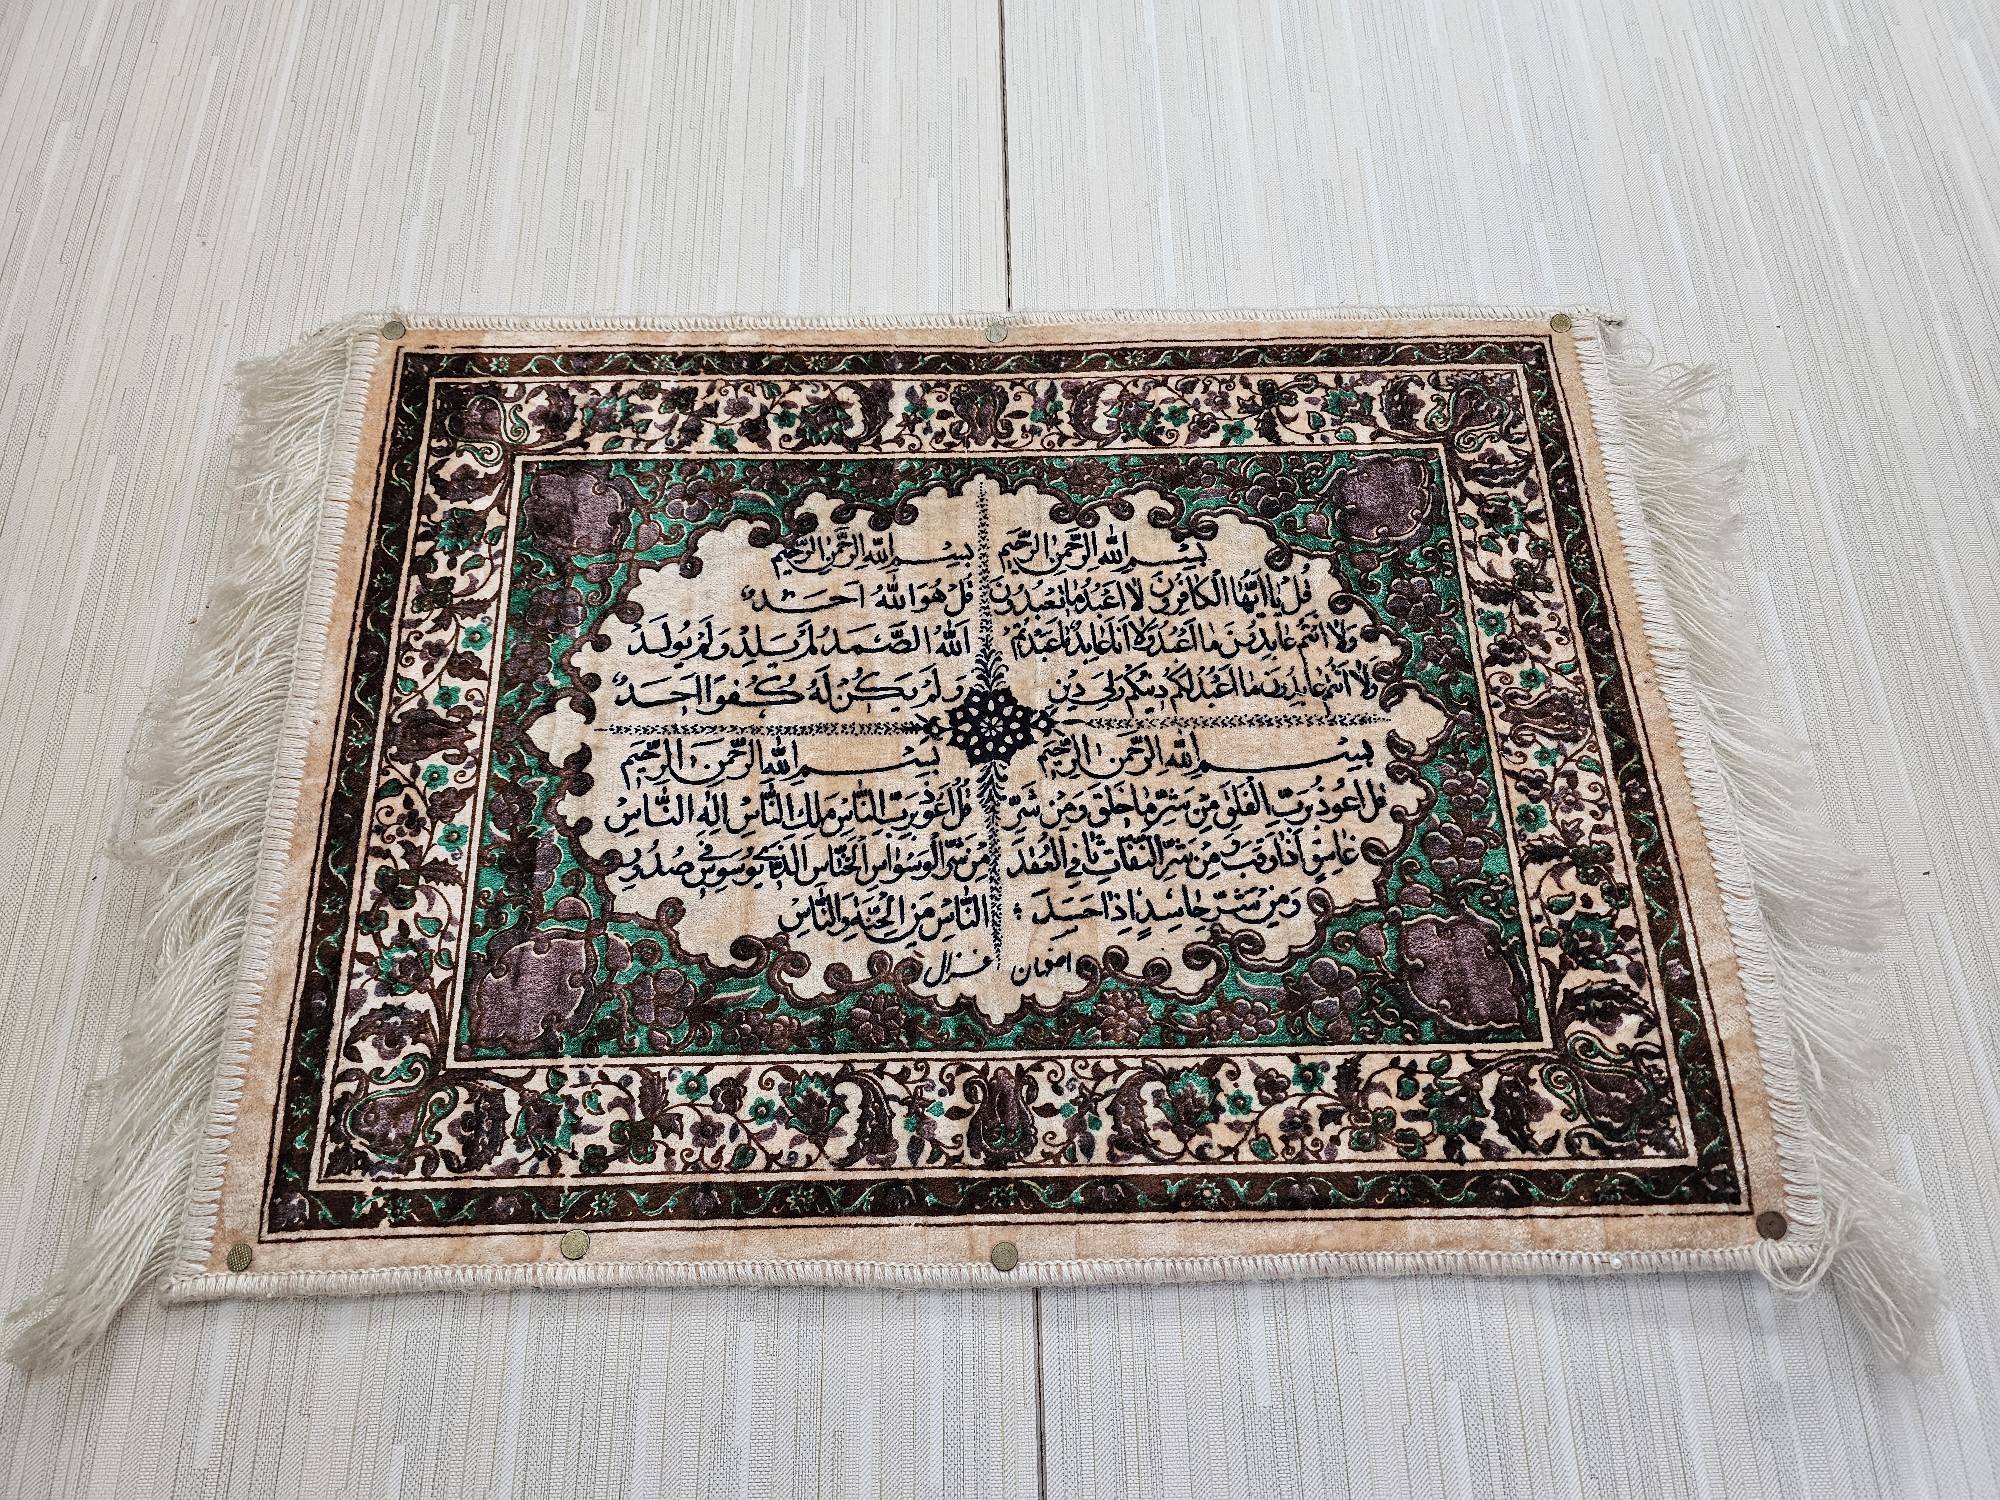 بِسْمِ اللهِ الرَّحْمٰنِ الرَّحِيمِ
قُلْ يَا اَيُّهَا الْكَافِرُونَ لا اَعْبُدُ مَا تَعْبُدُونَ
وَلا اَنْتُمْ عَابِدُونَ مَا اَعْبُدُ وَلا اَنَا عَابِدٌ مَا عَبَدْتُمْ
وَلا اَنْتُمْ عَابِدُونَ مَا اَعْبُدُ لَكُمْ دِينُكُمْ وَلِيَ دِينِ
بِسْمِ اللهِ الرَّحْمٰنِ الرَّحِيمِ
قُلْ هُوَ اللهُ اَحَدٌ
اَللهُ الصَّمَدُ لَمْ يَلِدْ وَلَمْ يُولَدْ
وَلَمْ يَكُنْ لَهُ كُفُوًا اَحَدٌ
بِسْمِ اللهِ الرَّحْمٰنِ الرَّحِيمِ
قُلْ اَعُوذُ بِرَبِّ الْفَلَقِ مِنْ شَرِّ مَا خَلَقَ وَمِنْ شَرِّ
غَاسِقٍ اِذَا وَقَبَ وَ مِنْ شَرِّ النَّفَّاثَاتِ فِي الْعُقَدِ
وَمِنْ شَرِّ حَاسِدٍ اِذَا حَسَدَ
بِسْمِ اللهِ الرَّحْمٰنِ الرَّحِيمِ
قُلْ اَعُوذُ بِرَبِّ النَّاسِ مَلِكِ النَّاسِ اِلٰهِ النَّاسِ
مِنْ شَرِّ الْوَسْوَاسِ الْخَنَّاسِ الَّذِي يُوَسْوِسُ فِي صُدُورِ
النَّاسِ مِنَ الْجِنَّةِ وَالنَّاسِ
اصفهان غزال